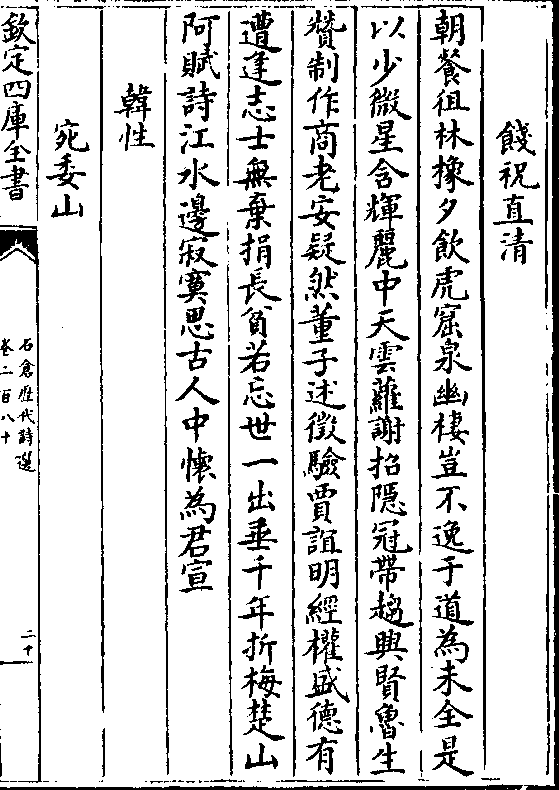 餞祝直清
朝餐徂林橡夕飲虎窟泉幽棲豈不逸于道為未全是
以少微星含輝麗中天雲蘿謝招隱冠帶趨興賢魯生
贊制作商老安疑然董子述徴驗賈誼明經權盛德有
遭逢志士無棄捐長貧若忘世一出垂千年折梅楚山
阿賦詩江水邊寂寞思古人中懷為君宣
韓性
宛委山
欽定四庫全書
石倉歴代詩選
卷二百八十
二十